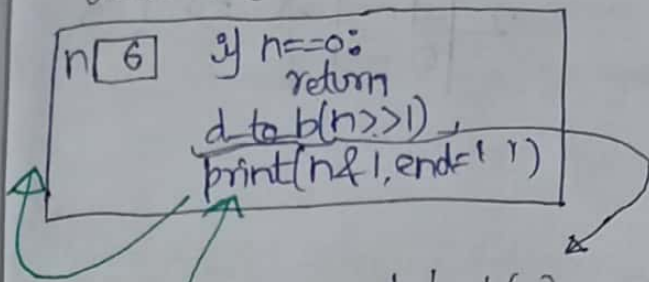 n 6 if n==0:
return
d_to_b(n>>1)
print(n&1,end=' ')